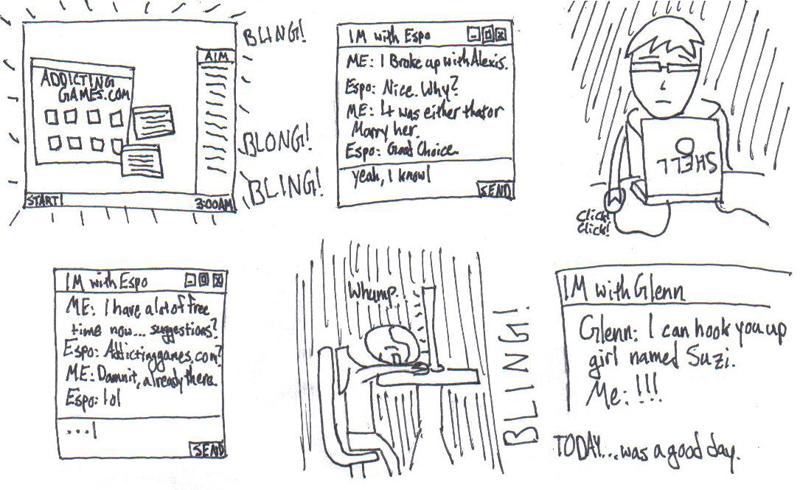 ADDICTING
GAMES.COM
AIM
START!
3:00AM
BLING!
BLONG!
BLING!
IM with Espo
ME: I Broke up with Alexis.
Espo: Nice. Why?
ME: It was either that or
Marry her.
Espo: Good Choice.
yeah, I know|
SEND
SHELL
Click!
Click!
IM with Espo
ME: I have a lot of free
time now... suggestions?
Espo: Addictinggames.com?
ME: Damnit, already there.
Espo: lol
...|
SEND
Whump..
BLING!
IM with Glenn
Glenn: I can hook you up
girl named Suzi.
Me: !!!
TODAY...was a good day.